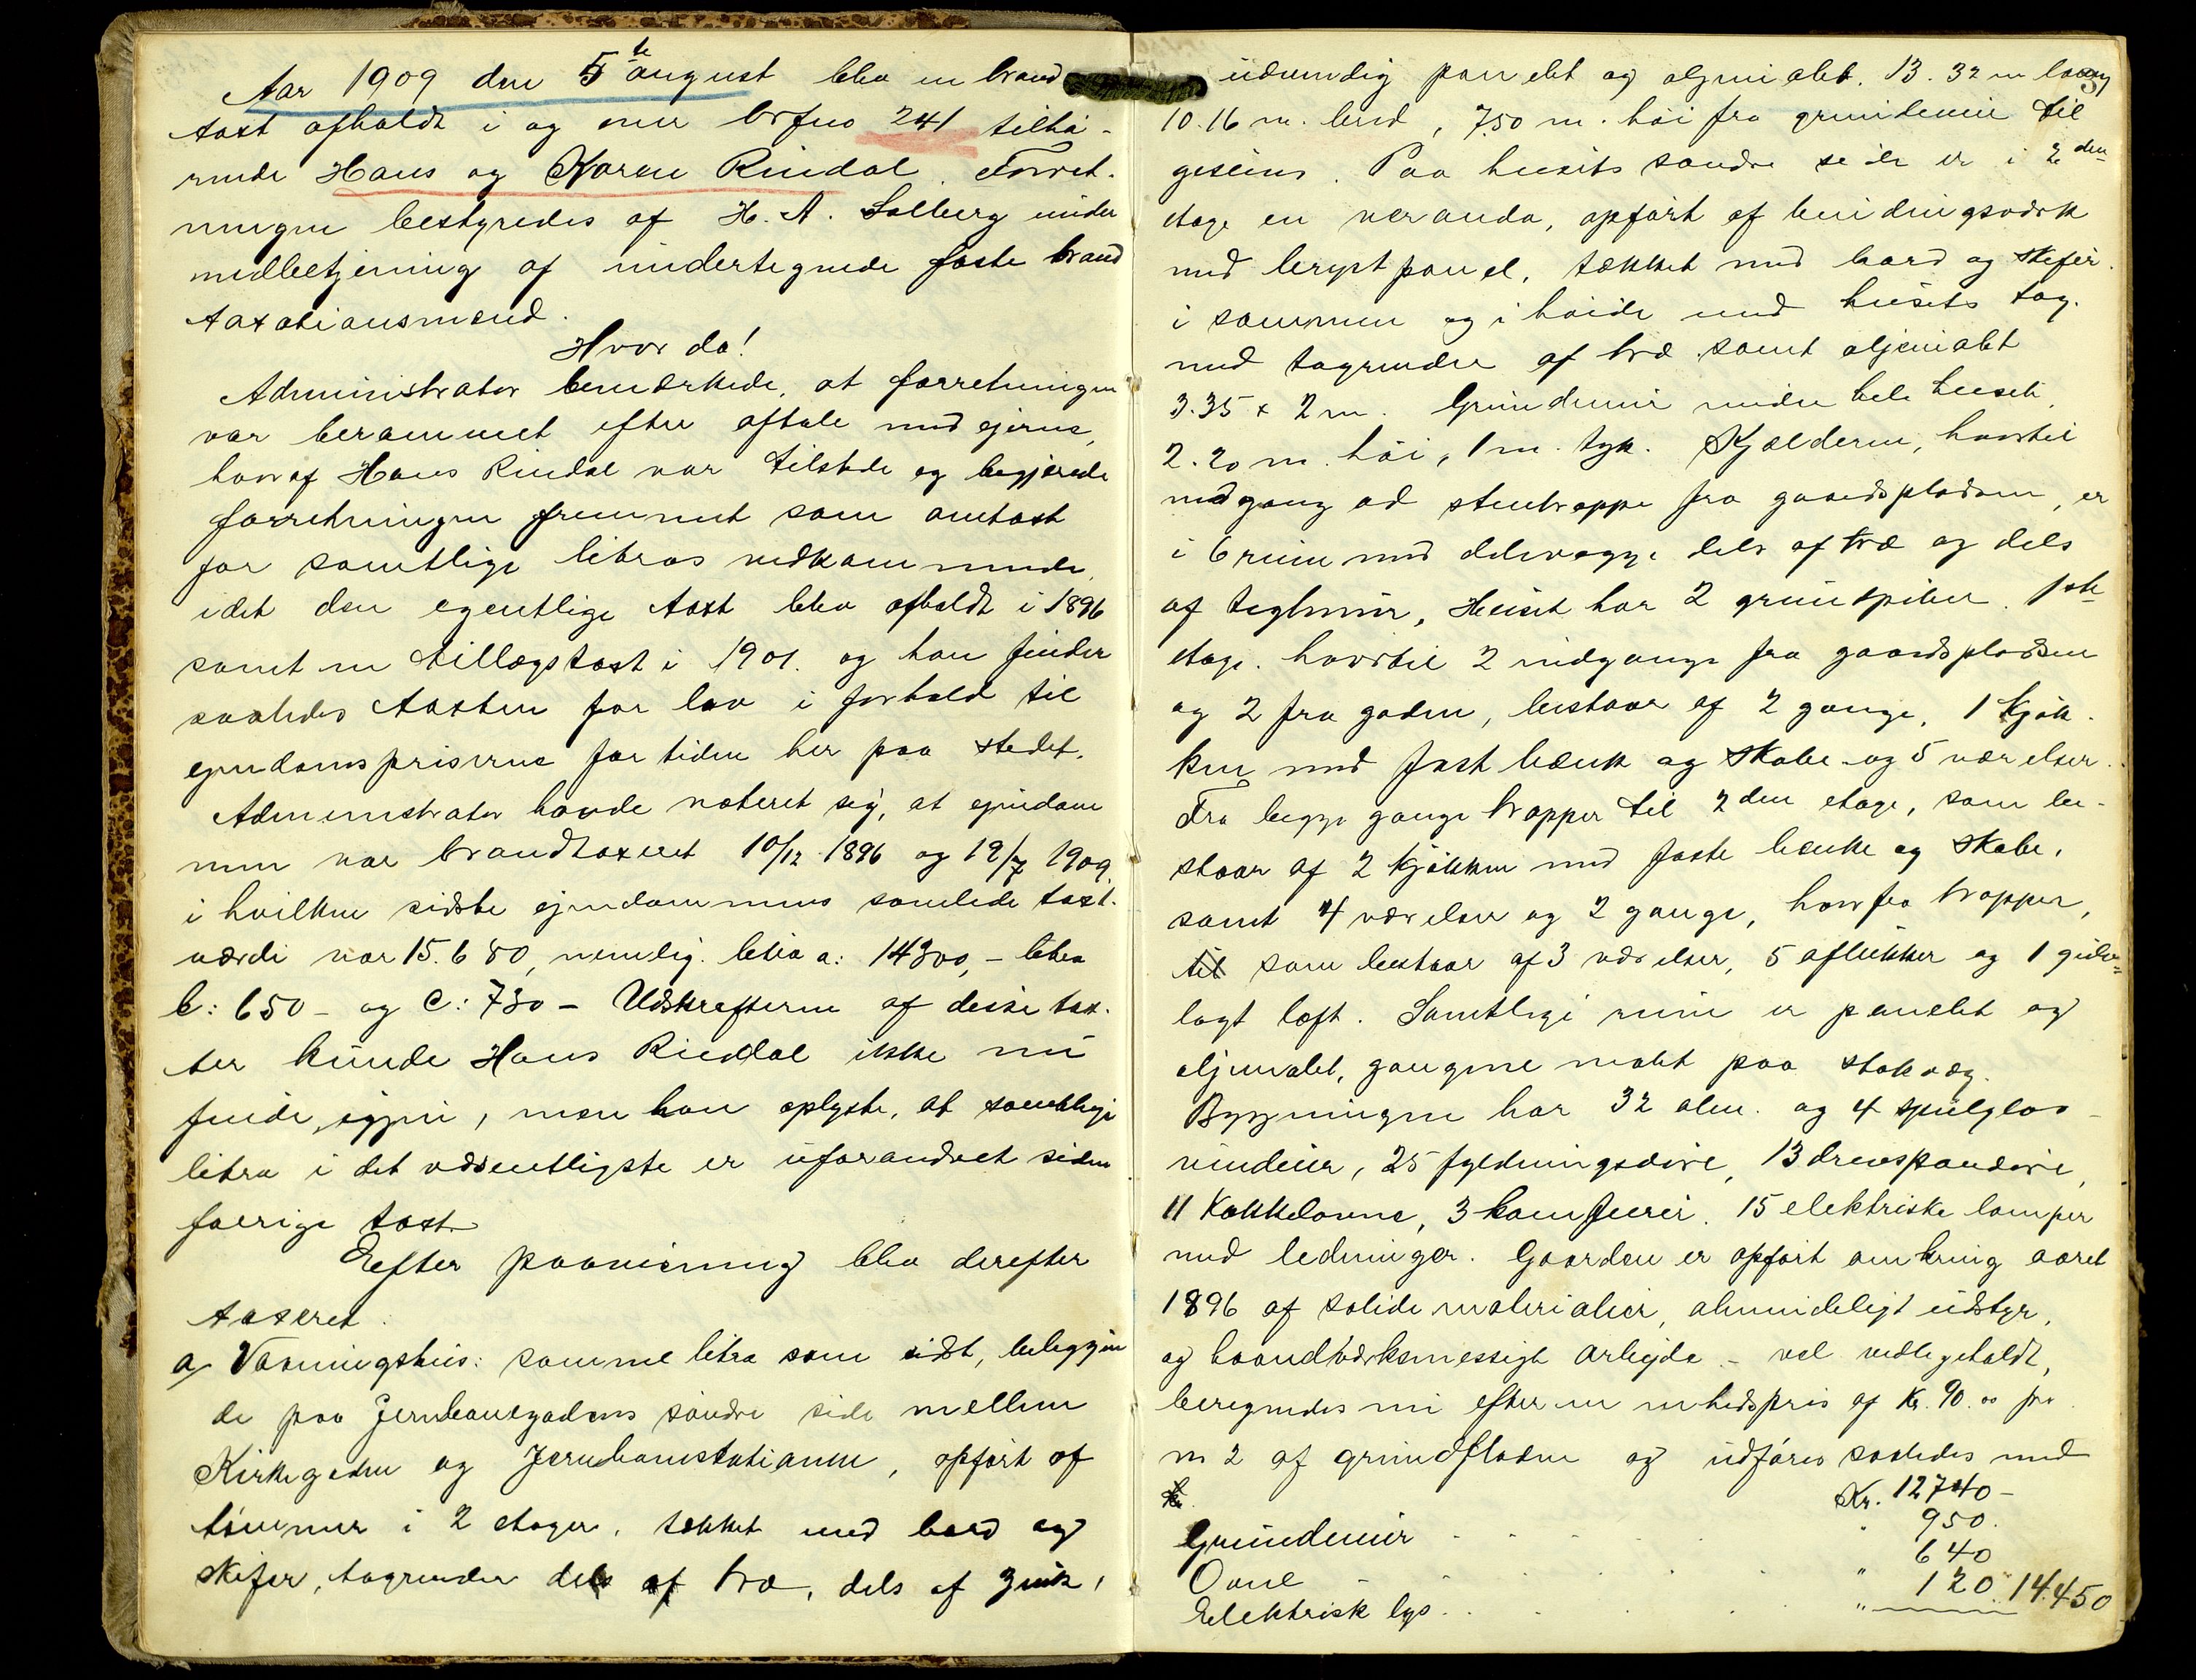 Aar 1909 den 5te august blev en brand
taxt afholdt i og over brfno 241 tilhø-
rende Hans og Karen Rindal. Forret-
ningen bestyredes af H. A. Solberg under
medbetjening af undertegnede faste brand
taxationsmænd.
Hvor da!
Administrator bemærkede, at forretningen
var berammet efter aftale med ejerne,
hvoraf Hans Rindal var tilstede og begjærede
forretningen fremmet som omtaxt
for samtlige litras vedkommende,
idet den egentlige taxt blev afholdt i 1896
samt en tillægstaxt i 1901. og han finder
saaledes taxten for lav i forhold til
ejendomspriserne for tiden her paa stedet.
Administrator havde noteret sig, at ejendom
men var brandtaxeret 10/12 1896 og 19/7 1909
i hvilken sidste ejendommens samlede taxt-
værdi var 15.680, nemlig. litra a: 14300,- litra
b: 650- og c: 730- Udskrifterne af disse tax-
ter kunde Hans Rindal ikke nu
finde igjen, men han oplyste, at samtlige
litra i det væsentligste er uforandret siden
forrige taxt
Efter paavisning blev derefter
taxeret:
a, Vaaningshus: samme litra som sidst, beliggen
de paa Jernbanegadens søndre side mellem
Kirkegaden og Jernbanestationen, opført af
tømmer i 2 etager, tækket med bord og
skifer, tagrender dels af træ, dels af zink,
udvendig panelet og oljemalet. 13.32 m lang
10.16 m. bred, 7.50 m. høi fra grundmur til
gesims. Paa husets søndre side er i 2den
etage en veranda, opført af bindingsværk
med brystpanel, tækket med bord og skifer
i sammen og i høide med husets tag.
med tagrender af træ samt oljemalet
3.35 x 2 m. Grundmur under hele huset
2.20 m. høi, 1 m. tyk. Kjælderen, hvortil
nedgang ad stentrappe fra gaardspladsen, er
i 6 rum med delevægge dels af træ og dels
af teglmur, Huset har 2 grunpiber. 1ste
etage. hvortil 2 indgange fra gaardspladsen
og 2 fra gaden, bestaar af 2 gange, 1 kjøk-
ken med fast bænk og skabe og 5 værelser.
Fra begge gange trapper til 2den etage, som be-
staar af 2 kjøkken med faste bænke og skabe,
samt 4 værelser og 2 gange, hvorfra trapper,
til som bestaar af 3 værelser, 5 aflukker og 1 gulv-
lagt loft. Samtlige rum er panelet og
oljemalet, gangene malet paa stokvæg.
Bygningen har 32 alm. og 4 speilglas-
vinduer, 25 fyldningsdøre, 13
11 kakkelovne, 3 komfurer. 15 elektriske lamper
med ledninger. Gaarden er opført omkring aaret
1896 af solide materialier, almindeligt udstyr,
og haandværksmessigt arbejde - vel vedligeholdt,
beregnedes nu efter en enhedspris af Kr. 90.00 pr.
m 2 af grundfladen og udføres saaledes med
Kr. Kr. 12740-
Grundmur . . . " 950.
Ovne - . . . " 640
Elektrisk lys . . . " 120. 14.450